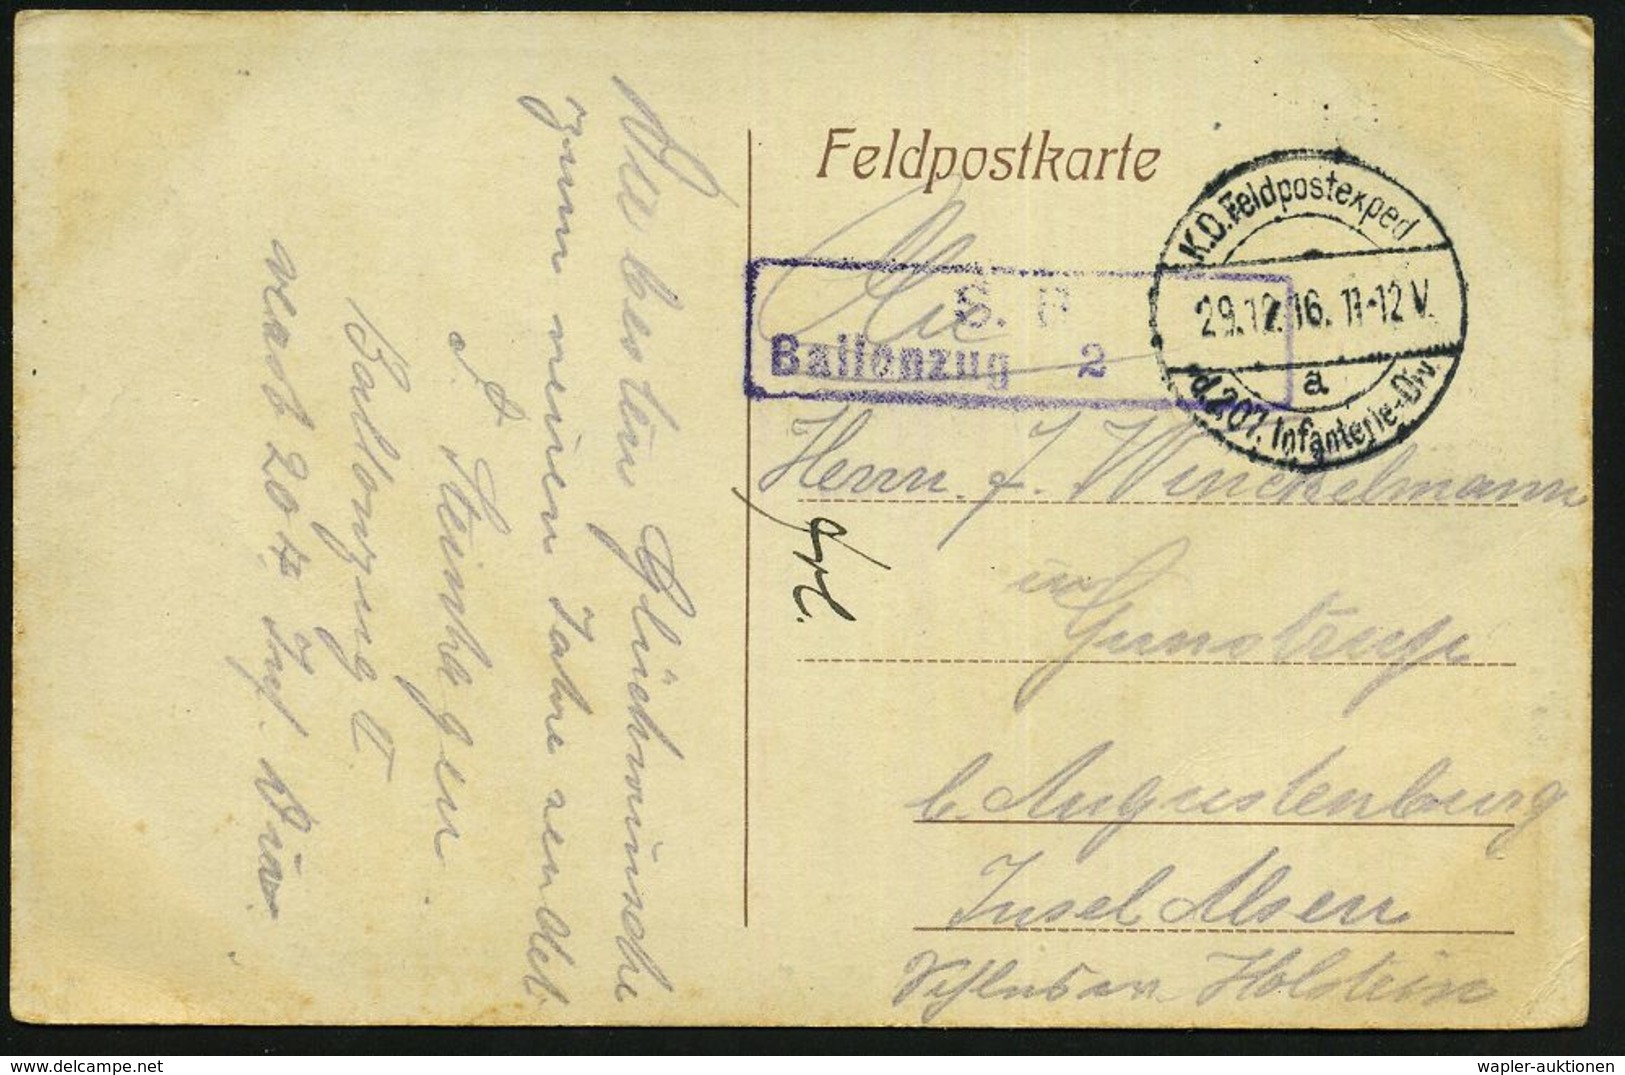 Die besten Glückwünsche
zum neuen Jahre sendet
Steinhagen
Ballonzug II
207 Inf. Div.
Feldpostkarte
K.D. Feldpostexped
29.12.16. 11-12 V.
a
d. 207. Infanterie-Div.
S. B
Ballonzug 2
Herrn. J. Winckelmann
in Gunstrup
b. Augustenburg
Insel Alsen
Schleswi Holstein
wapler-auktionen